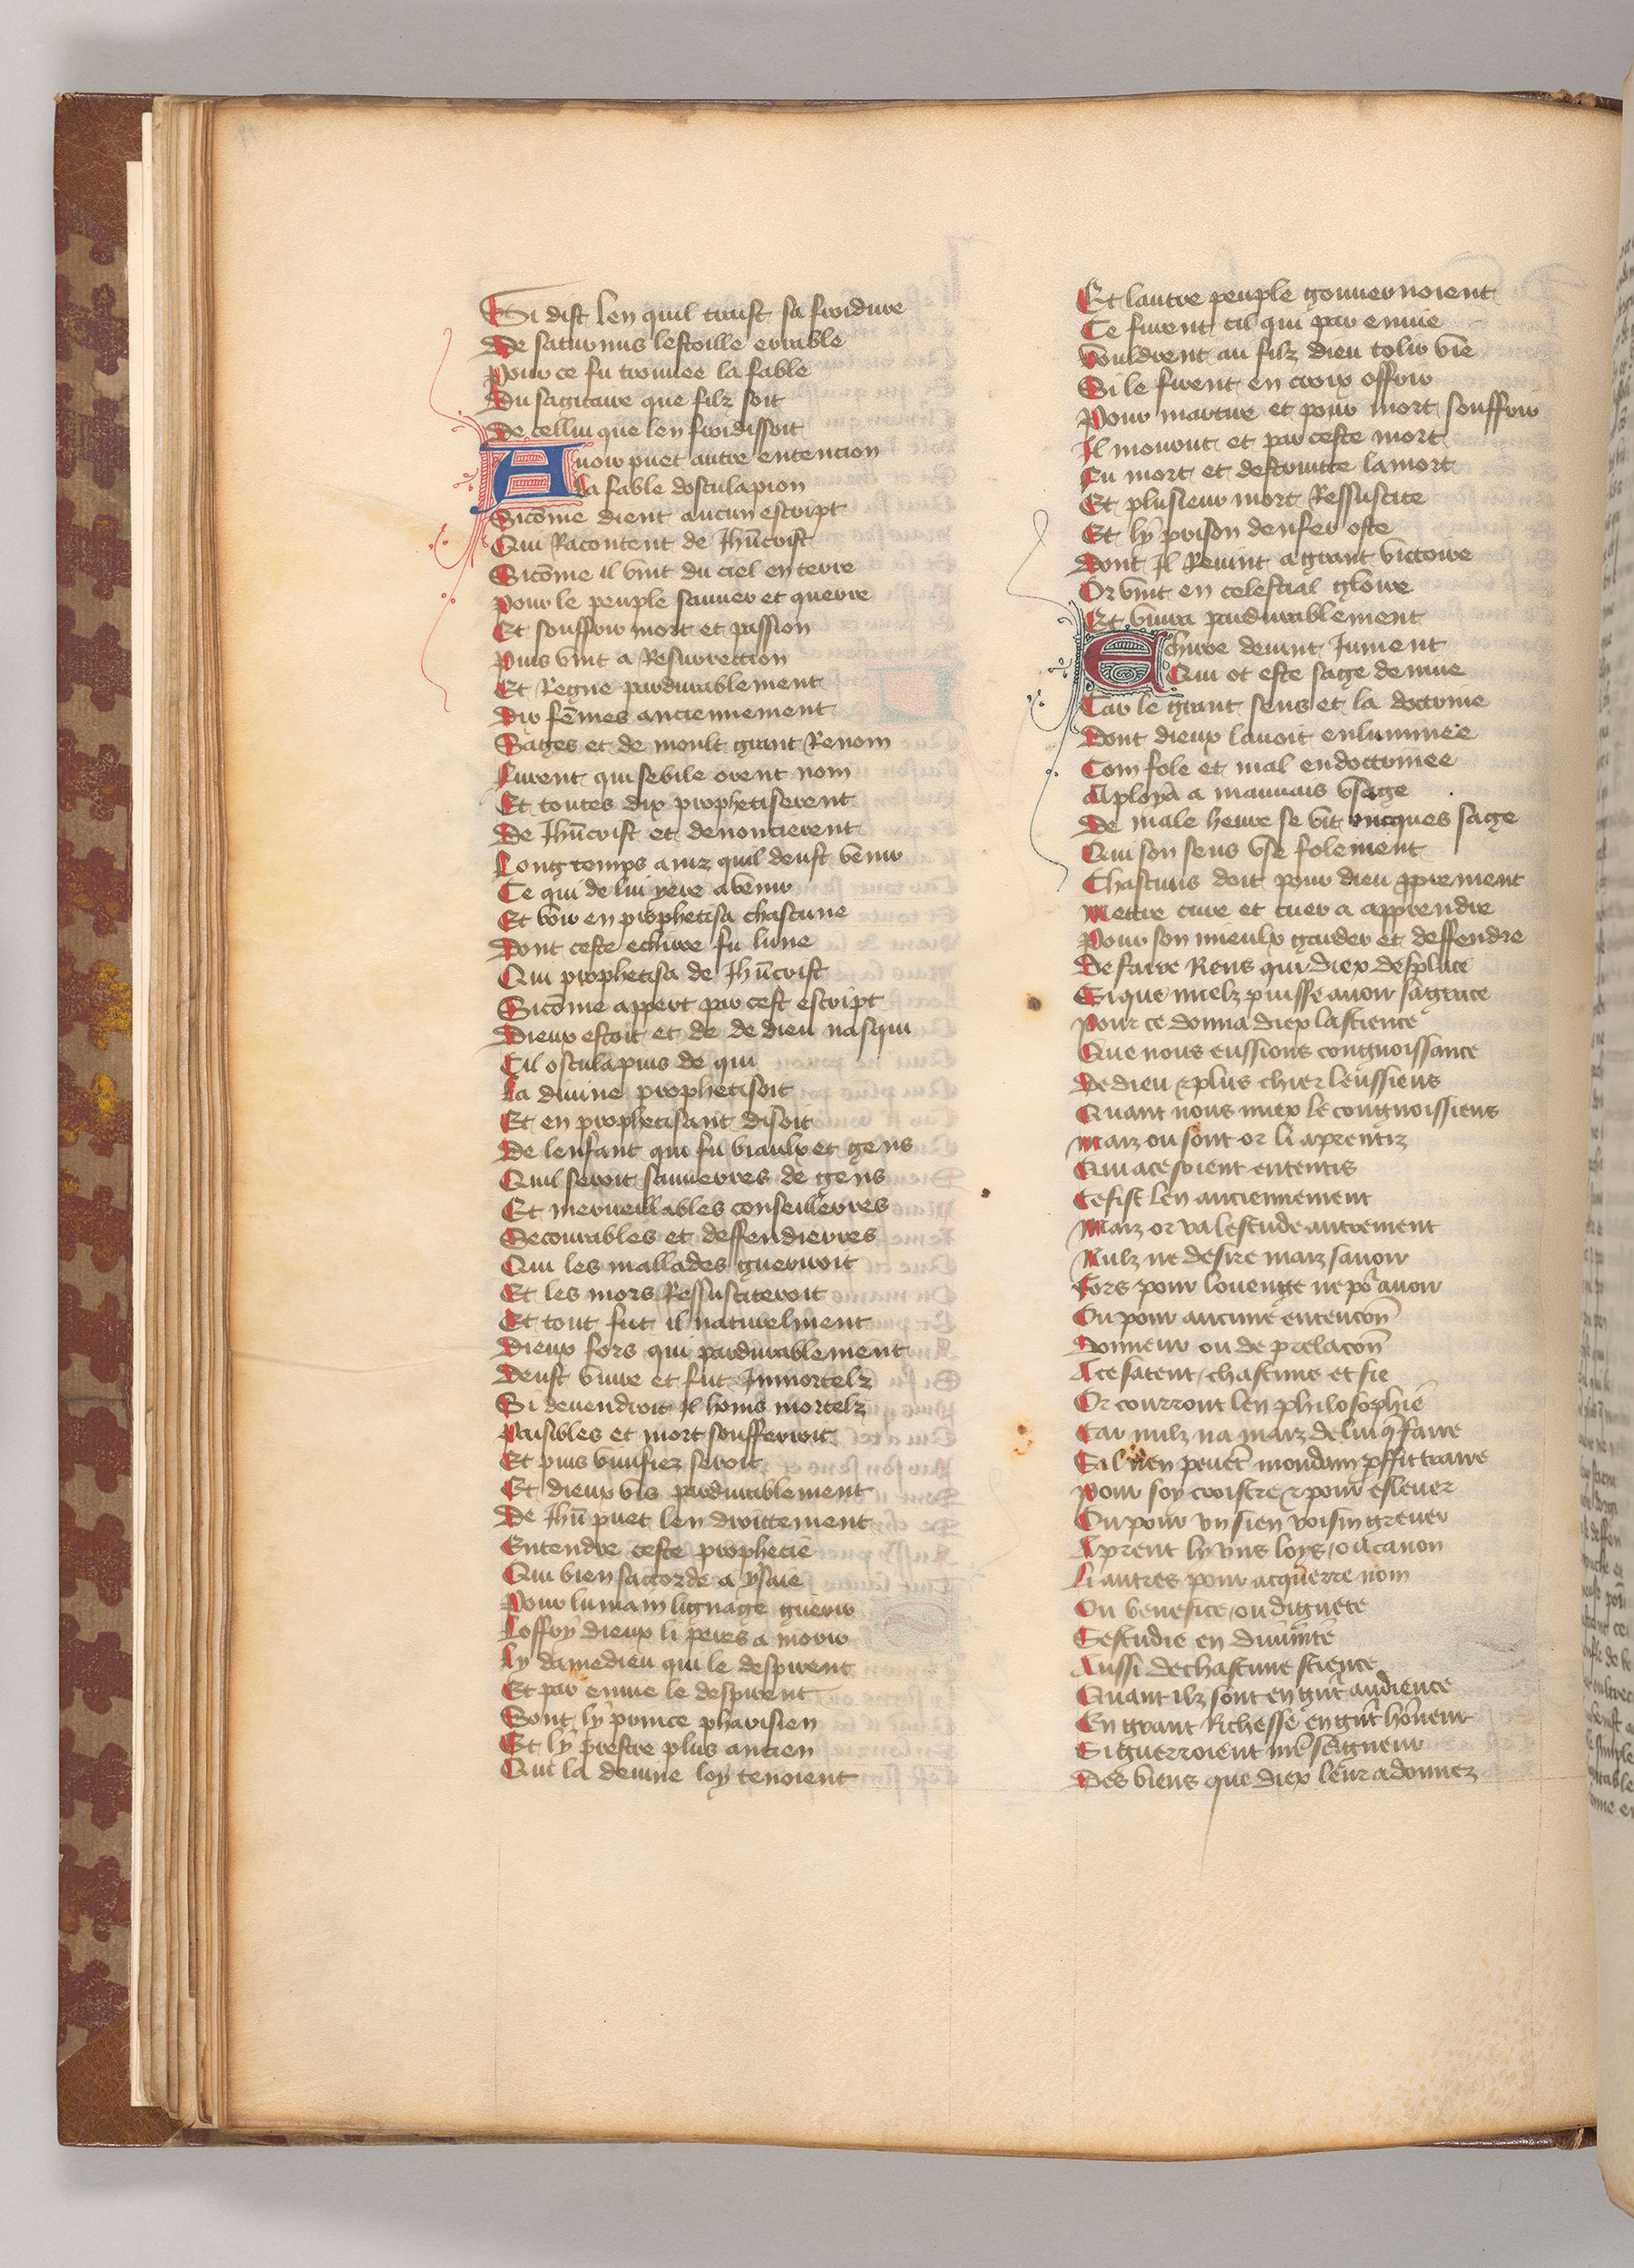 Si dist len quil trouist sa froidure
De saturnus lestoille errable
Pour ce fu trouuee la fable
Du sagitaire que filz soit
De cellui que len froidissoit
Auoir puet autre entencion
La fable dosculapion
Sicōme dient aucun escript
Qui Racontent de Jhūcrist
Sicōme il vint du ciel en terre
Pour le peuple sauuer et querre
Et souffrir mort et passion
Puis vint a Resurrection
Et Regne pardurablement
Dix fēmes anciennement
Sages et de moult grant Renom
Furent qui sebile orent nom
Et toutes dix prophetiserent
De Jhūcrist et denoncierent
Long temps ainz quil deust venir
Ce qui de lui yere a venir
Et voir en prophetisa chascune
Dont ceste echirre fu lune
Qui prophetisa de Jhūcrist
Sicōme appert par cest escript
Dieux estoit et de de dieu nasqui
Cil osculapius de qui
La diuine prophetisoit
Et en prophetisant disoit
De lenfant qui fu biaulx et gens
Quil seroit sauuerres de gens
Et merueillables conseillerres
Secourables et deffendierres
Qui les mallades gueriroit
Et les mors Ressusciteroit
Et tout fut il naturelment
Dieux fors qui pardurablement
Deust viure et fut Inmortelz
Si deuendroit Il homs mortelz
Paisibles et mort soufferroit
Et puis viuifiez seroit
Et dieux vis pardurablement
De Jhū puet len droittement
Entendre ceste prophecie
Qui bien saccorde a ysaie
Pour lumain lignage guerir
Loffry dieux li peres a morir
Ly damedieu qui le despirent
Et par enuie le despirent
Sont ly prince pharisien
Et ly prestre plus ancien
Qui la deuine loy tenoient
Et lautre peuple gouuernoient
Ce furent cil qui par enuie
Vouldrent au filz dieu tolir vie
Si le firent en croix offrir
Pour martire et pour mort souffrir
Il mourut et par ceste mort
Fu mort et destruitte lamort
Et plusieur mort Ressuscite
Et ly prison denfer oste
Dont Il Reuint a grant victoire
Or vint en celestial gloire
Et viura pardurablement
Echirre deuint Jument
Qui ot este sage deuine
Car le grant sens et la doctrine
Dont dieux lauoit enluminee
Com fole et mal endoctrinee
Aploya a mauuais vsage
De male heure se vit oncques sage
Qui son sens vse folement
Chascuns doit pour dieu ꝓprement
Mettre cure et cuer a apprendre
Pour son mieulx garder et deffendre
De faire Riens qui diex desplace
Si que mielz puisse auoir sa grace
Pour ce donna diex la science
Que nous eussions congnoissance
De dieu & plus chier leussiens
Quant nous miex le congnoissiens
Maiz ou sont or li aprentiz
Qui a ce soient ententis
Ce fist len anciennement
Maiz or va lestude autrement
Nulz ne desire maiz sauoir
Fors pour louenge ne po' auoir
Ou pour aucune entencōn
Donneur ou de prelacōn
A ce satent chascuns et fie
Or courront len philosophie
Car nulz na maiz de lui q̄ faire
Sil nen peuet mondain ꝓffit traire
Pour soy croistre & pour esleuer
Ou pour vn sien voisin greuer
Aprent ly vns loys ou canon
Li autres pour acquerre nom
Ou benefice ou dignete
Sestudie en diuinite
Aussi de chascune science
Quant ilz sont en gr̄t audience
En grant Richesse en gr̄t hōneur
Si guerroient nr̄e seigneur
Des biens que diex leur a donnez